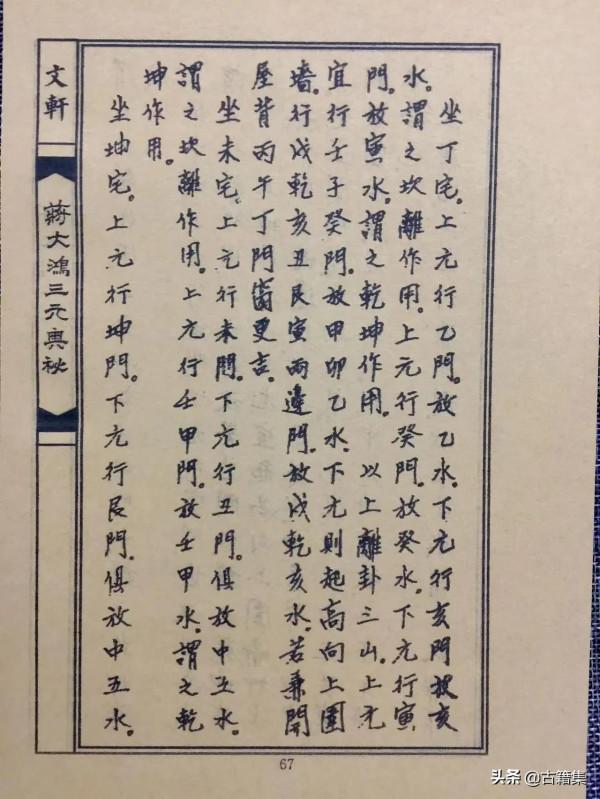 坐丁宅。上元行乙門。放乙水。下元行亥門放亥
水。謂之坎離作用。上元行癸門。放癸水。下元行寅
門。放寅水。謂之乾坤作用。 以上離卦三山。上元
宜行壬子癸門。放甲卯乙水。下元則起高向上圍
墻。行戌乾亥丑艮寅兩邊門。放戌乾亥水。若兼開
屋背丙午丁門窗更吉。
坐未宅。上元行未門。下元行丑門。俱放中五水。
謂之坎離作用。上元行壬甲門。放壬甲水。謂之乾
坤作用。
坐坤宅。上元行坤門。下元行艮門。俱放中五水。
文軒
蔣大鴻三元奧秘
67
头条 @古籍集